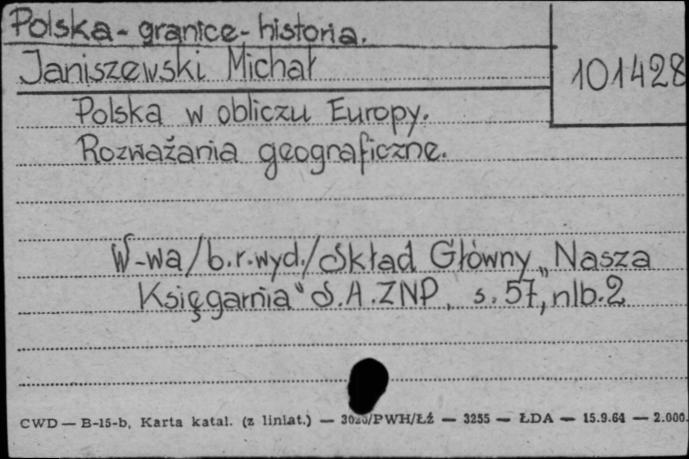 Polska - granice - historia.
Janiszewski Michał
101428
Polska w obliczu Europy.
Rozważania geograficzne.
W-wa /b.r.wyd./ Skład Główny „Nasza
Księgarnia" S.A. ZNP, s. 57, nlb. 2
CWD — B-15-b, Karta katal. (z liniat.) — 3020/PWH/ŁŹ — 3255 — ŁDA — 15.9.64 — 2.000.